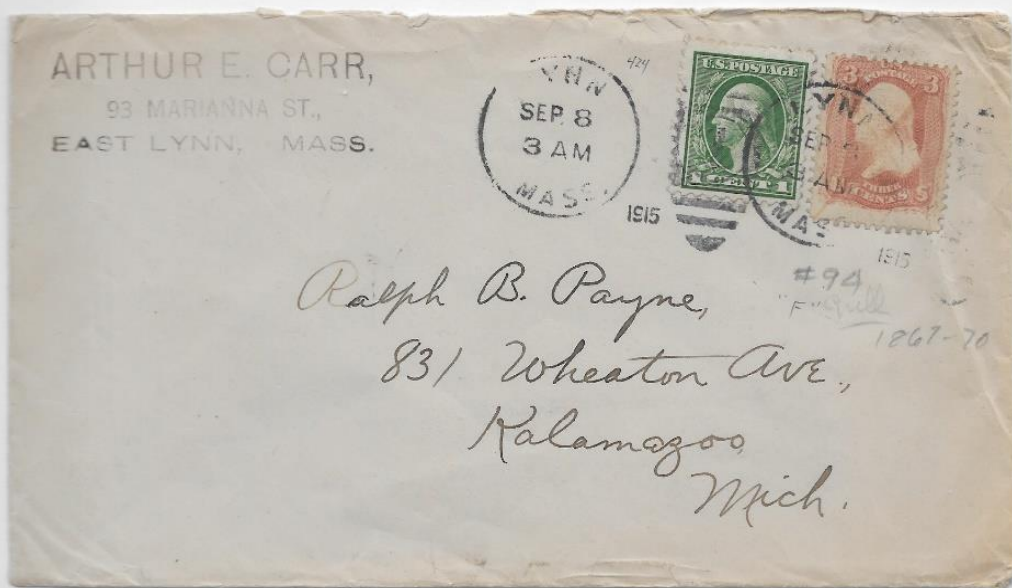 ARTHUR E. CARR,
93 MARIANNA ST.,
EAST LYNN, MASS.
YNN
SEP. 8
3 AM
MASS.
1915
424
U.S. POSTAGE
1 CENT 1
LYNN
SEP.
3 AM
MASS
1915
3 POSTAGE 3
CENTS
#94
"F" Grill
1867-70
Ralph B. Payne,
831 Wheaton Ave.,
Kalamazoo,
Mich.